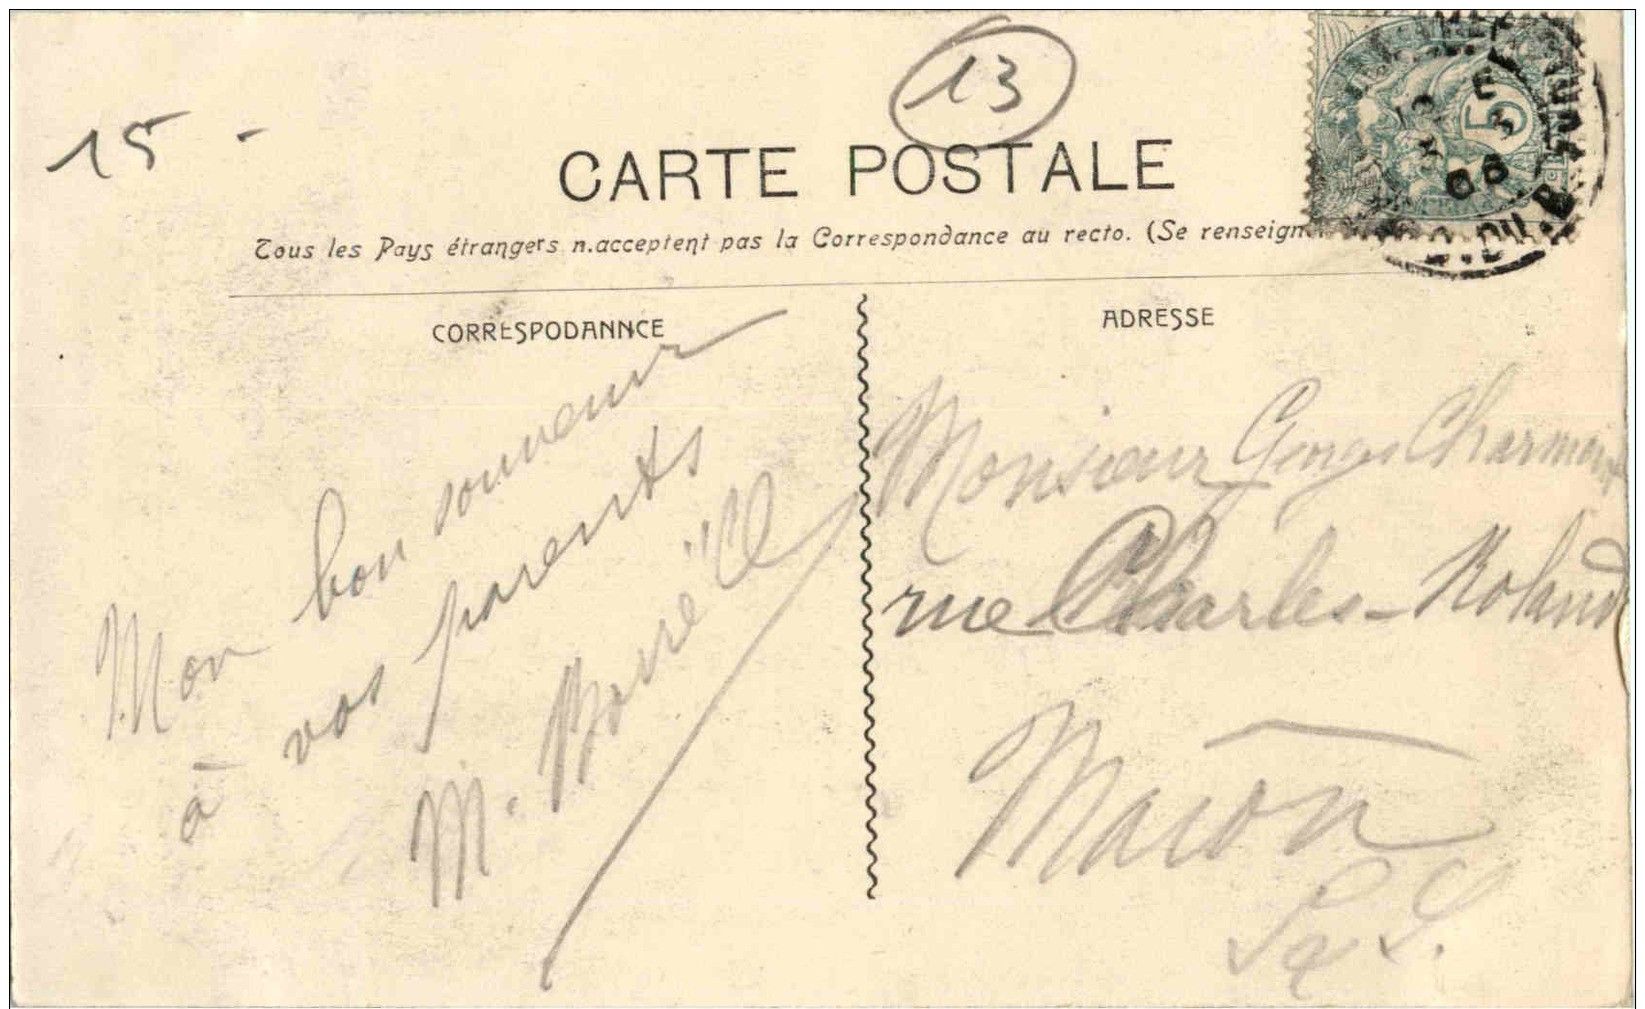 15 -
13
CARTE POSTALE
Tous les Pays étrangers n.acceptent pas la Correspondance au recto. (Se renseign
CORRESPODANNCE
Mon bon souvenir
à vos parents
M.
ADRESSE
Monsieur Georges
rue Charles-Roland
Macon
S & L.
5